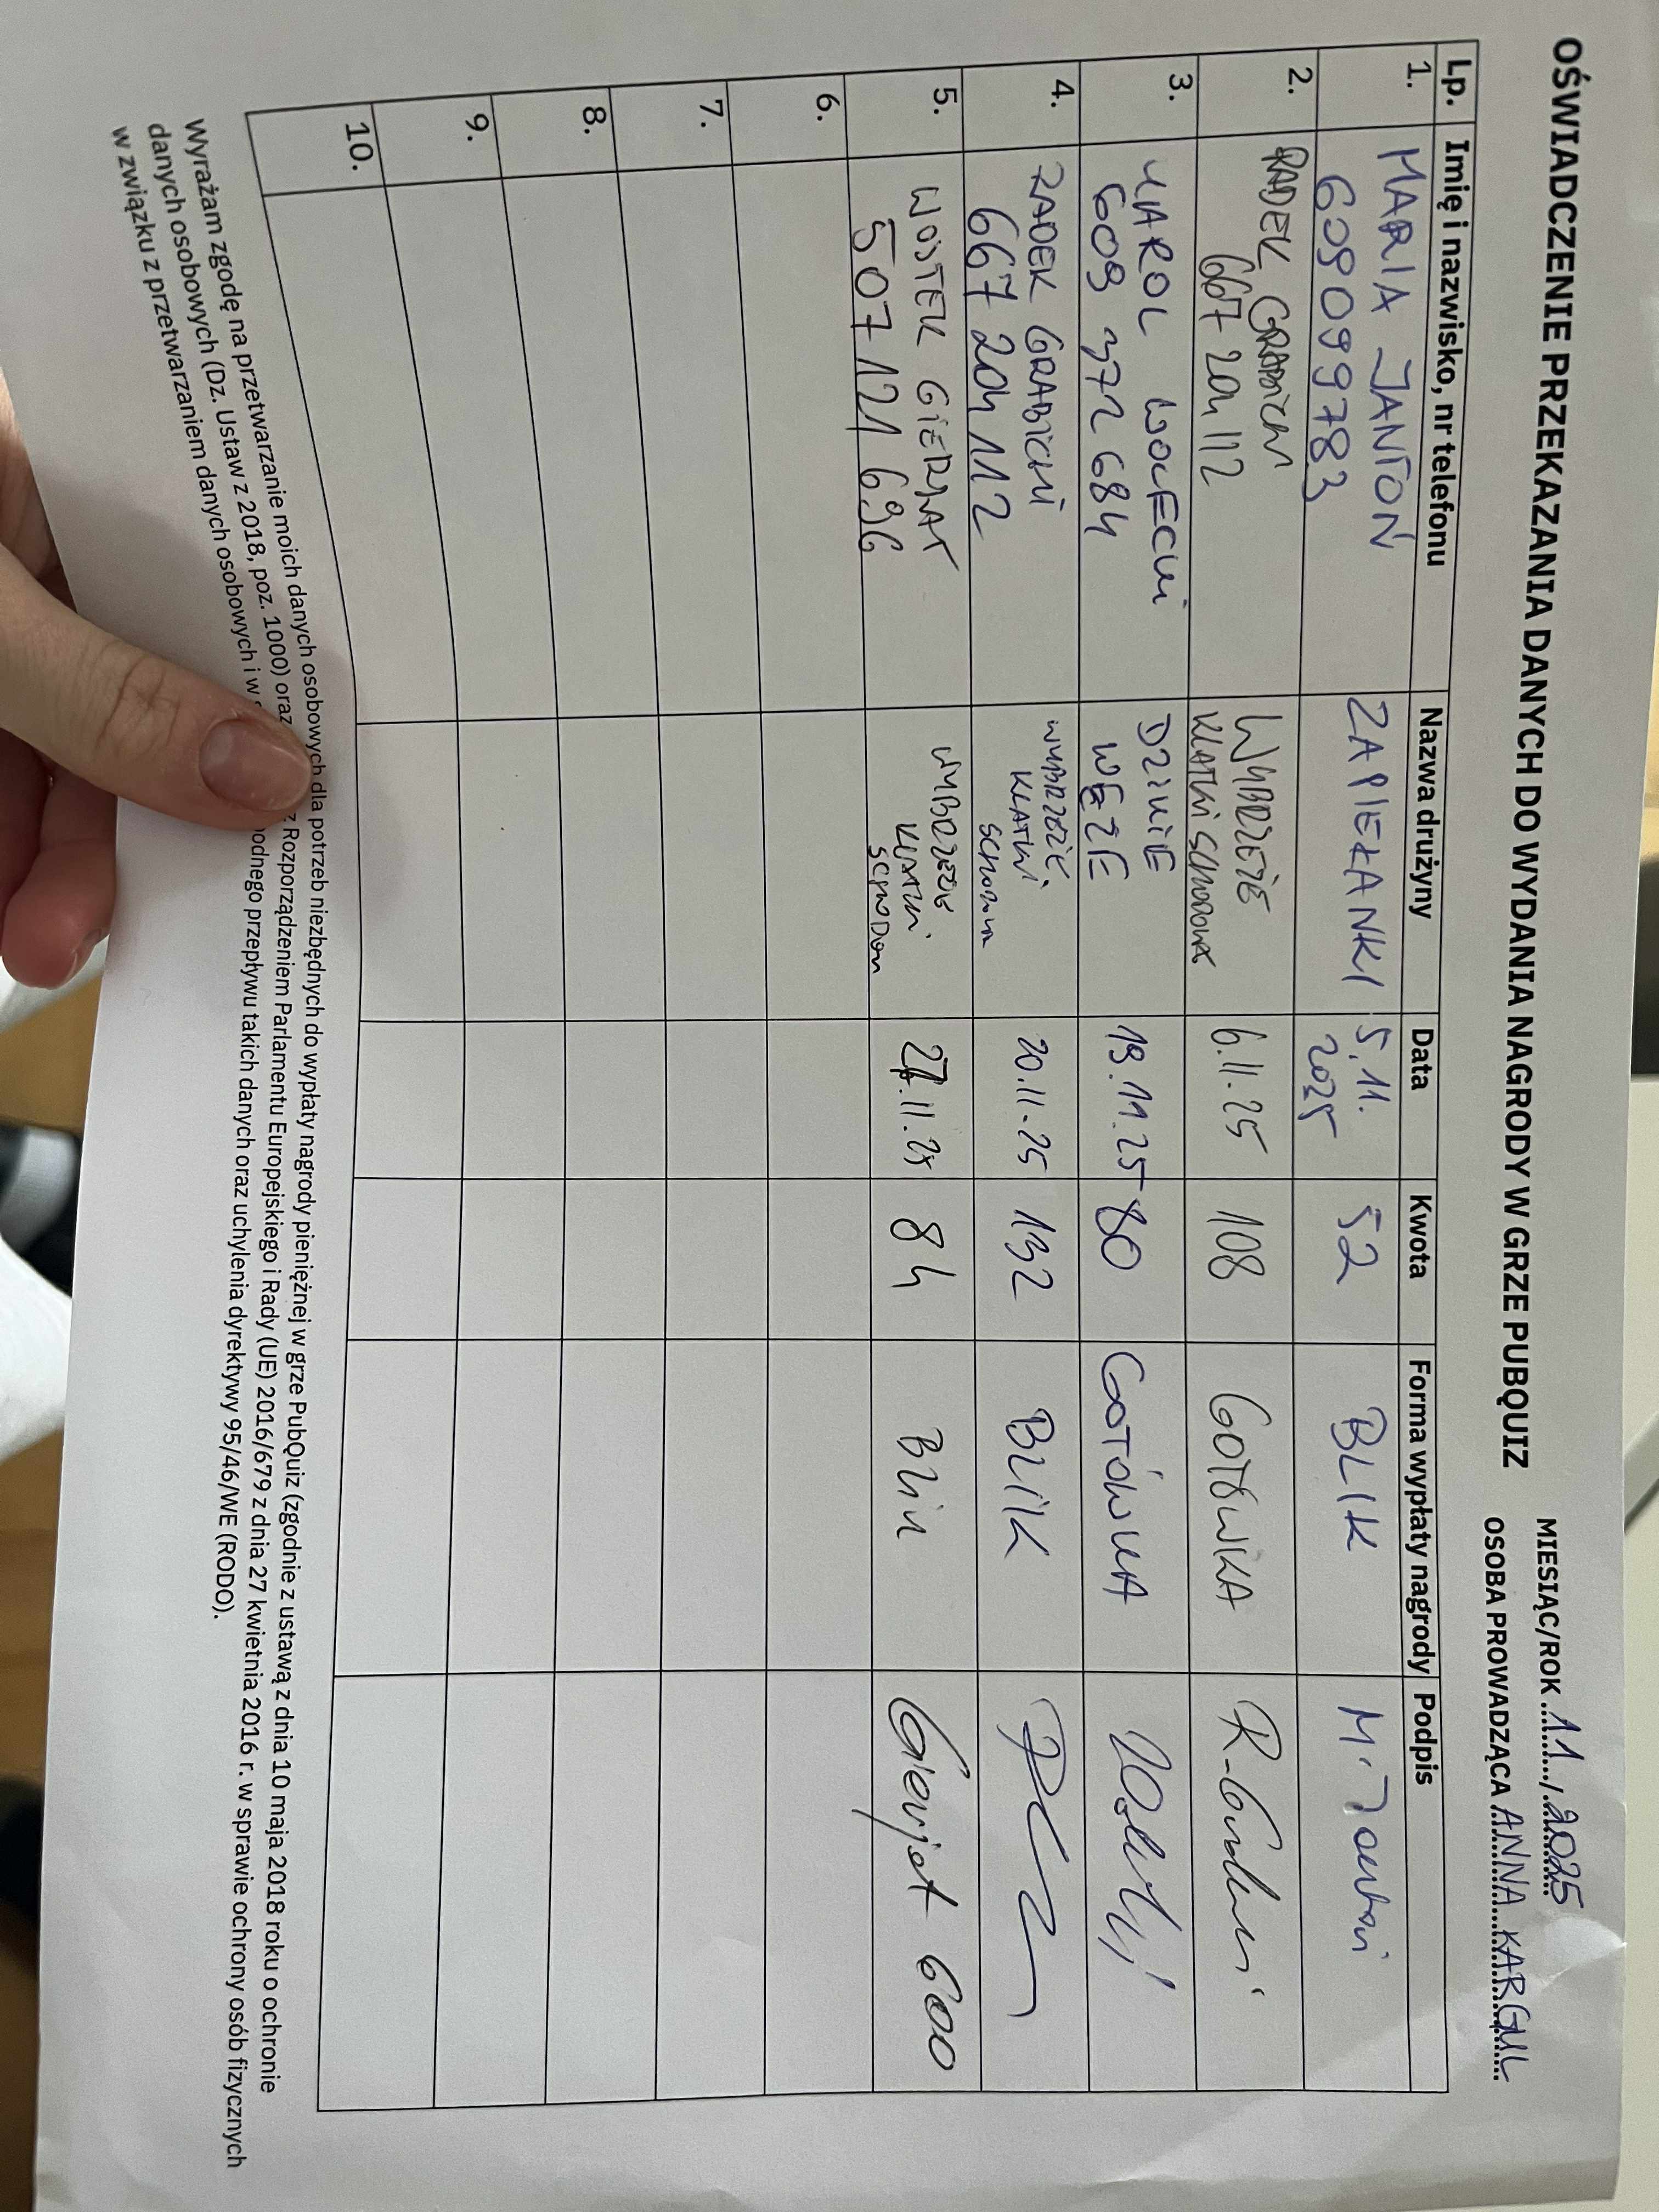 OŚWIADCZENIE PRZEKAZANIA DANYCH DO WYDANIA NAGRODY W GRZE PUBQUIZ
MIESIĄC/ROK 11 / 2025
OSOBA PROWADZĄCA ANNA KARGUL
Lp. Imię i nazwisko, nr telefonu Nazwa drużyny Data Kwota Forma wypłaty nagrody Podpis
1. MARIA JANTOŃ ZAPIEKANKI 5.11. 52 BLIK M. Jantoń
609099783 2025
2. RADEK WYBRZEŻE 6.11.25 108 GOTÓWKA
667 204 112 KLATKI SCHODOWA
3. KAROL WOŁECKI DZIKIE 19.11.25 80 GOTÓWKA
609 372 684 WĘŻE
4. RADEK GRABICKI WYBRZEŻE 20.11.25 132 BLIK
667 204 112 KLATKI
5. WOJTEK GIERJAT WYBRZEŻE 27.11.25 84 Blik Gierjat 600
507 121 696 KLATKI
6.
7.
8.
9.
10.
Wyrażam zgodę na przetwarzanie moich danych osobowych dla potrzeb niezbędnych do wypłaty nagrody pieniężnej w grze PubQuiz (zgodnie z ustawą z dnia 10 maja 2018 roku o ochronie
danych osobowych (Dz. Ustaw z 2018, poz. 1000) oraz z Rozporządzeniem Parlamentu Europejskiego i Rady (UE) 2016/679 z dnia 27 kwietnia 2016 r. w sprawie ochrony osób fizycznych
w związku z przetwarzaniem danych osobowych i w przepływu takich danych oraz uchylenia dyrektywy 95/46/WE (RODO).